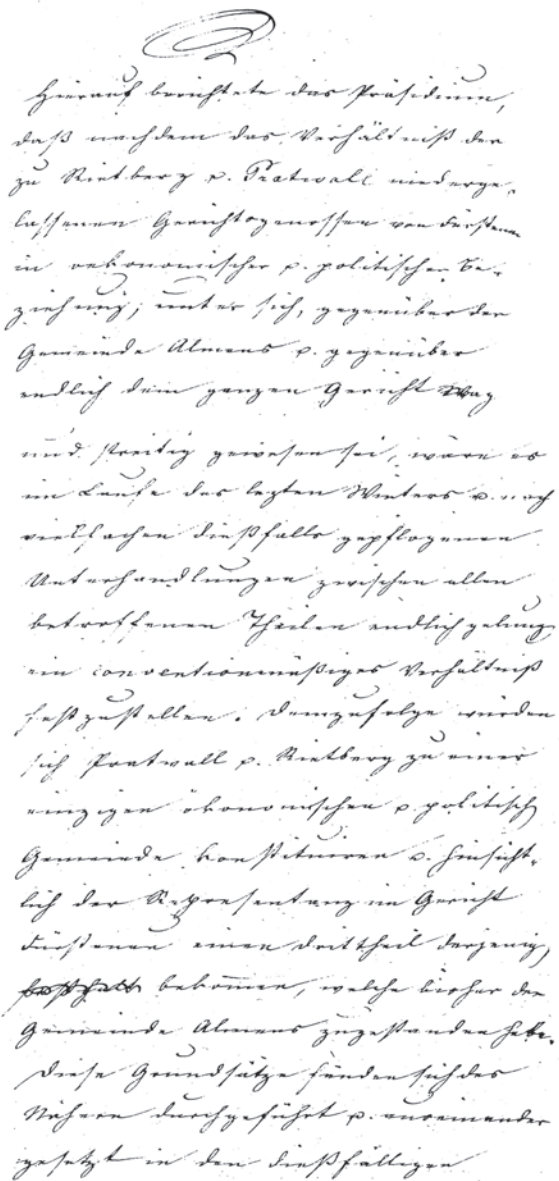 Hierauf berichtete das Präsidium,
daß nachdem das Verhältniß der
zu Rietberg u. Pratwall niederge-
lassenen Gerichtsgenossen von Fürstenau
in oekonomischer u. politischer Be-
ziehung, unter sich, gegenüber der
Gemeinde Almens u. gegenüber
endlich dem ganzen Gericht
und streitig gewesen sei, wäre es
im Laufe des lezten Winters u. nach
vielfachen dießfalls gepflogenen
Unterhandlungen zwischen allen
betroffenen Theilen endlich gelung
ein conventionmäßiges Verhältniß
festzustellen. Demzufolge würden
sich Pratwall u. Rietberg zu einer
einzigen ökonomischen u. politisch
Gemeinde konstituiren u. hinsicht-
lich der Representanz im Gericht
Fürstenau einen Drittheil derjenig
bekommen, welche bisher der
Gemeinde Almens zugestanden habe.
Diese Grundsätze fänden sich des
Nähern durchgeführt u. auseinander
gesetzt in den dießfälligen